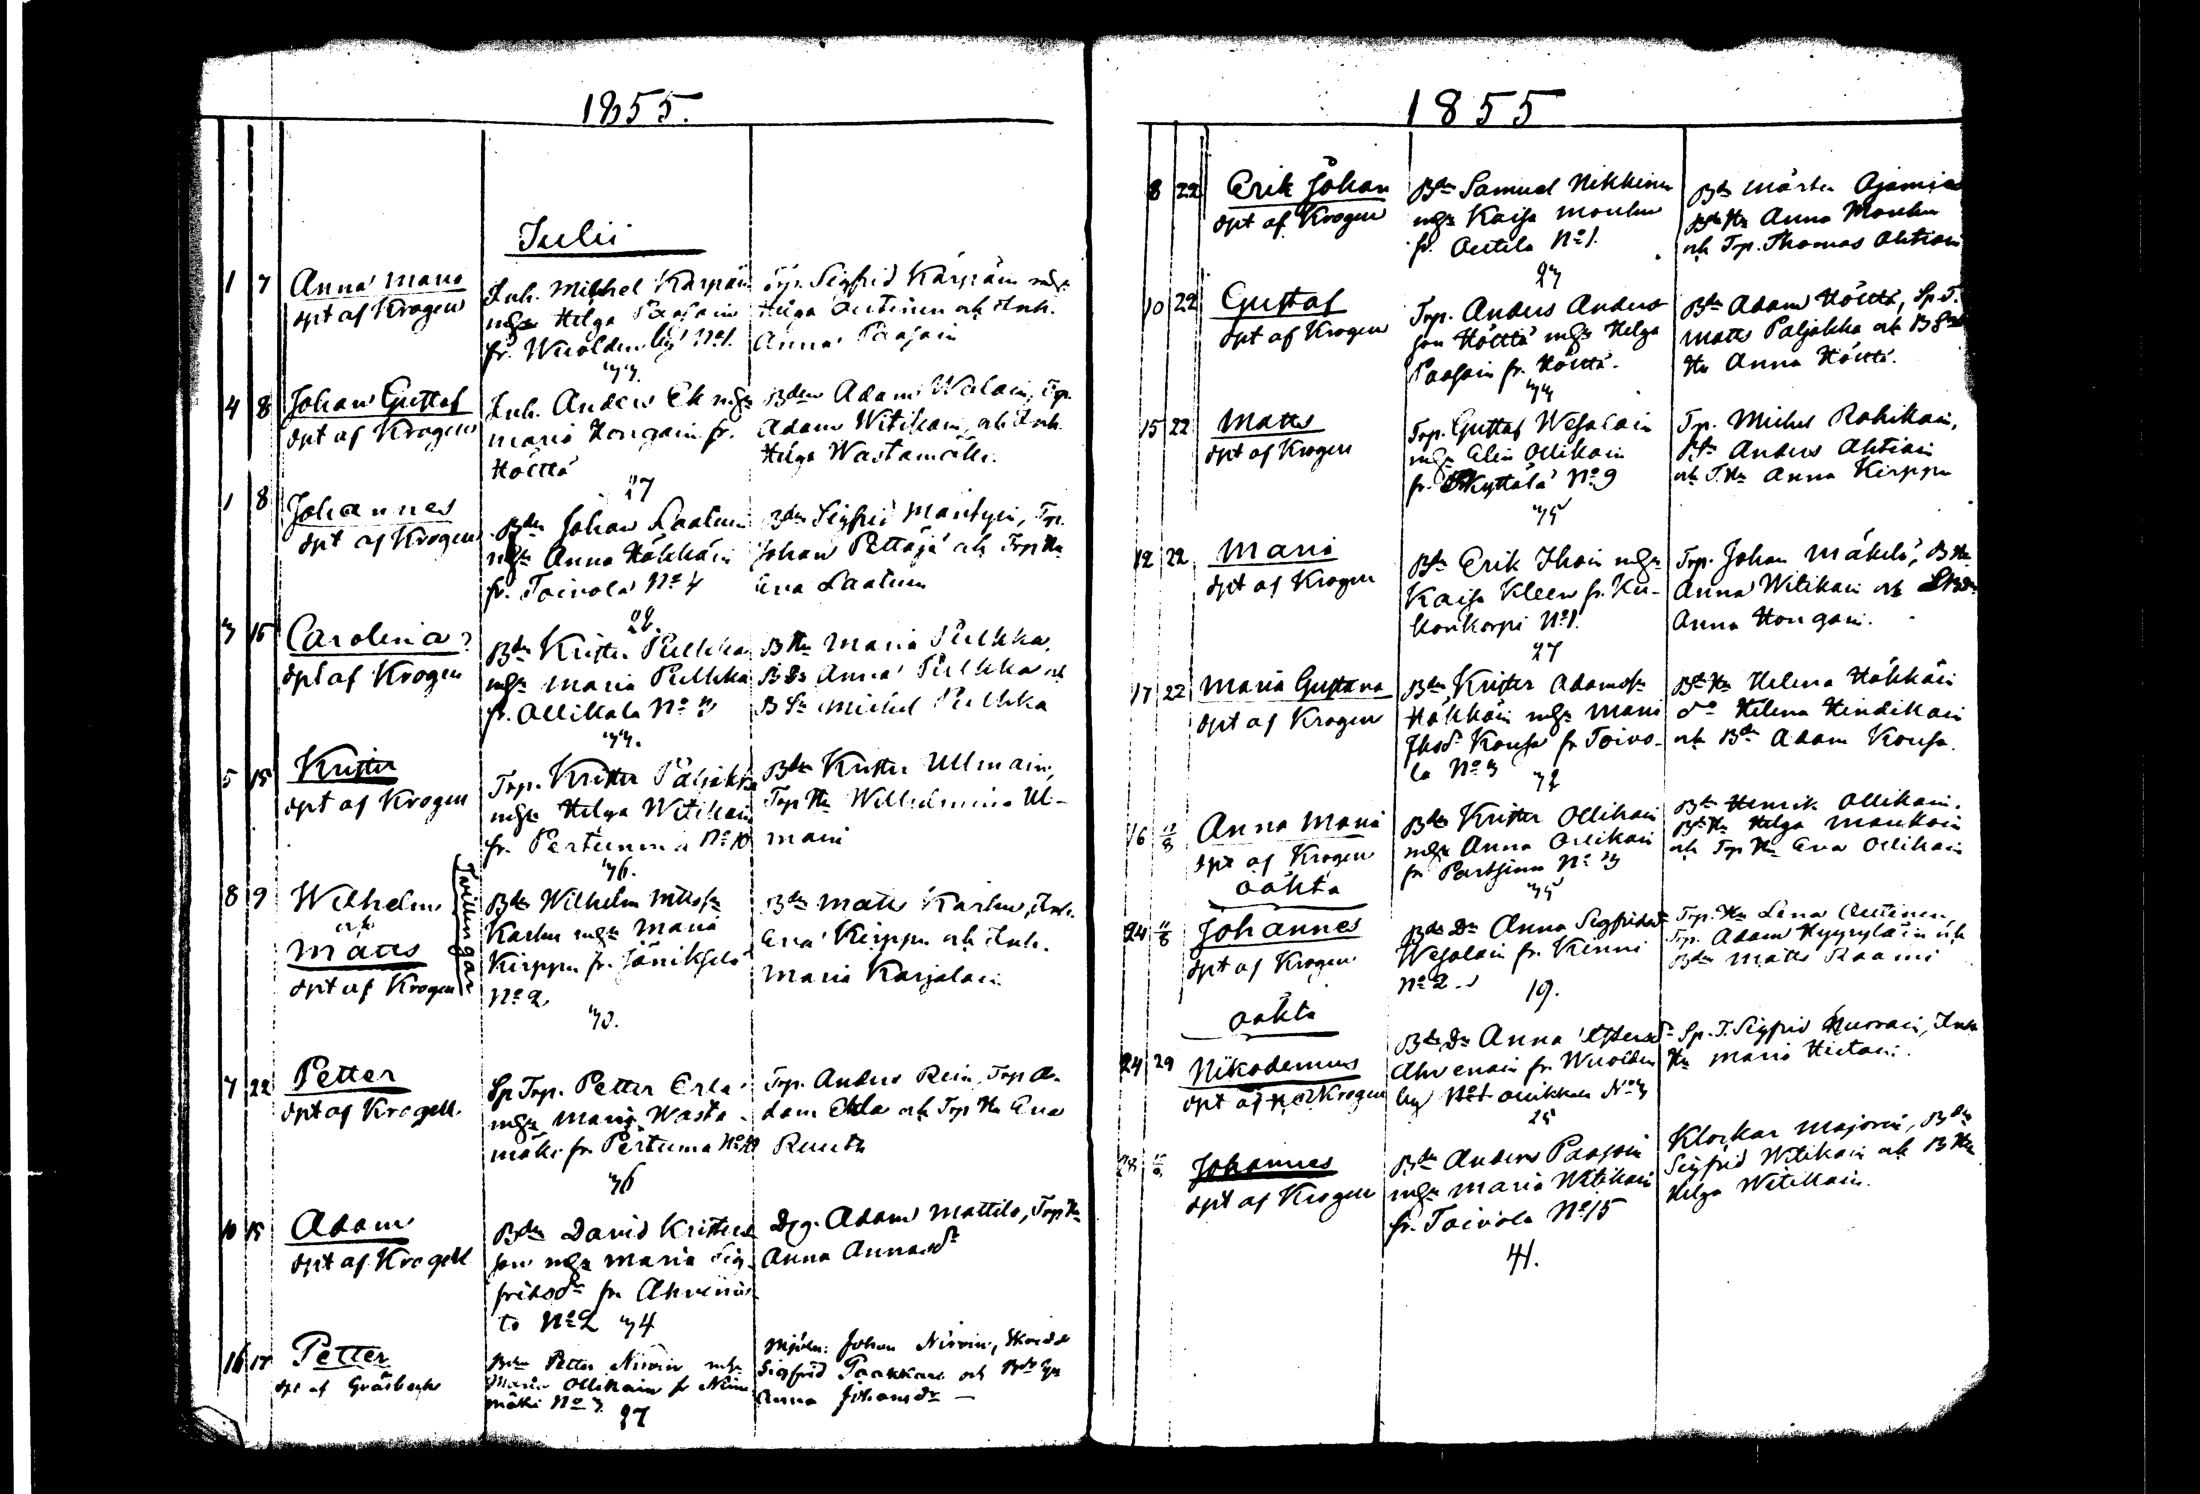 1855.
Julii
1 7 Anna Maria
dpt af Krogen
Inh. Michel Kärpäin
mgn Helga Paasoin
fr. Wuolden by No 1.
Trp. Sigfrid Kärpäin mgn
Helga Outinen och Inh.
Anna Paasoin
4 8 Johan Gustaf
dpt af Krogen
Inh. Anders Ek mgn
Maria Hongain fr.
Hölttä
27
Bden Adam Walain, Trp.
Adam Witikain, och Inh.
Helga Wastamäki.
1 8 Johannes
dpt af Krogen
Bdn Johan Laatuin
mgn Anna Häkkäin
fr. Toivola No 4
28.
Bdn Sigfrid Mäntyin, Trp.
Johan Pettäjä och Trp Hu
Eva Laatuin
15 Carolina
dpt af Krogen
Bdn Krister Pulkka
mgn Maria Pulkka
fr. Ollikala No
B Hu Maria Pulkka,
B Dr Anna Pulkka och
B Sn Michel Pulkka
5 15 Krister
dpt af Krogen
Trp. Krister Paljakka
mgn Helga Witikain
fr. Pertunma No 10
36.
Bdn Krister Ullmain,
Trp Hu Wilhelmina Ul-
main
8 9 Wilhelm
och
Matts
Tvillingar
dpt af Krogen
Bdn Wilhelm Mattss
Karhu mgn Maria
Kirppu fr. Jänikselä
No 2
30.
Bdn Matts Karhu, Inh.
Eva Kirppu och Inh.
Maria Karjalain
7 22 Petter
dpt af Krogell.
Sp Trp. Petter Erla
mgn Maria Wasta-
mäki fr Pertunma No 10
36
Trp. Anders Rein, Trp A-
dam Erla och Trp Hu Eva
Ruuth
10 15 Adam
dpt af Krogell
Bdn David Kristers
son mgn Maria Sig-
fridsdr fr Ahvenis-
to No 2 34
Drg. Adam Mattila, Trp Hu
Anna Annasdr
16 17 Petter
dpt af Gråsbeck
Bdn Petter Niroin mgn
Maria Ollikain fr Niini
mäki No 3
27
Mjöln: Johan Niroin, Skrädd
Sigfrid Paakkari och Bde Hu
Anna Johansdr —
1855
8 22 Erik Johan
dpt af Krogen
Bdn Samuel Nikkinen
mgn Kaisa Moukin
fr. Outila No 1.
27
Bdn Mårten
Bdn Hu Anna Moukin
och Trp. Thomas Ahtiain
10 22 Gustaf
dpt af Krogen
Trp. Anders Anders
son Höltta mgn Helga
Paasoin fr. Hölttä.
Bdn Adam Hölttä, Sp T.
Matts Paljakka och
Hu Anna Hölttä.
15 22 Matts
dpt af Krogen
Trp. Gustaf Wesalain
mgn Elin Ollikain
fr. Kyttälä No 9
35
Trp. Michel Rahikain,
Bdn Anders Ahtiain
och T. Hu Anna Kirppu
12 22 Maria
dpt af Krogen
Bdn Erik Ihain mgn
Kaisa Kleen fr. Ku-
konkorpi No 1.
27
Trp. Johan Mäkelä, B Hu
Anna Witikain och
Anna Hongain.
17 22 Maria Gustava
dpt af Krogen
Bdn Krister Adamss
Häkkäin mgn Maria
Kousa fr Toivo-
la No 3 32
Bd Hu Helena Häkkäin
do Helena Hindikain
och Bdn Adam Kousa.
16 Anna Maria
dpt af Krogen
Bdn Krister Ollikain
mgn Anna Ollikain
fr Partsima No 3
35
Bdn Henrik Ollikain.
Bd Hu Helga Maukoin
och Trp Hu Eva Ollikain
oäkta
24 Johannes
dpt af Krogen
Bde Dr Anna Sigfridsdr
Wesalain fr. Kinni
No 2.
19.
Trp. Hu Lena Outinen,
Trp. Adam Hyyryläin och
Bdn Matts Raami
oäkta
24 29 Nikodemus
dpt af Krogen
Bde Dr Anna
Ahvenain fr Wuolden
by No 1
25
Sp. T. Sigfrid
Hu Maria Hietain.
28 Johannes
dpt af Krogen
Bdn Anders Paasoin
mgn Maria Witikain
fr. Toivola No 15
41.
Klockar Majorin, Bdn
Sigfrid Witikain och B Hu
Helga Witikain.